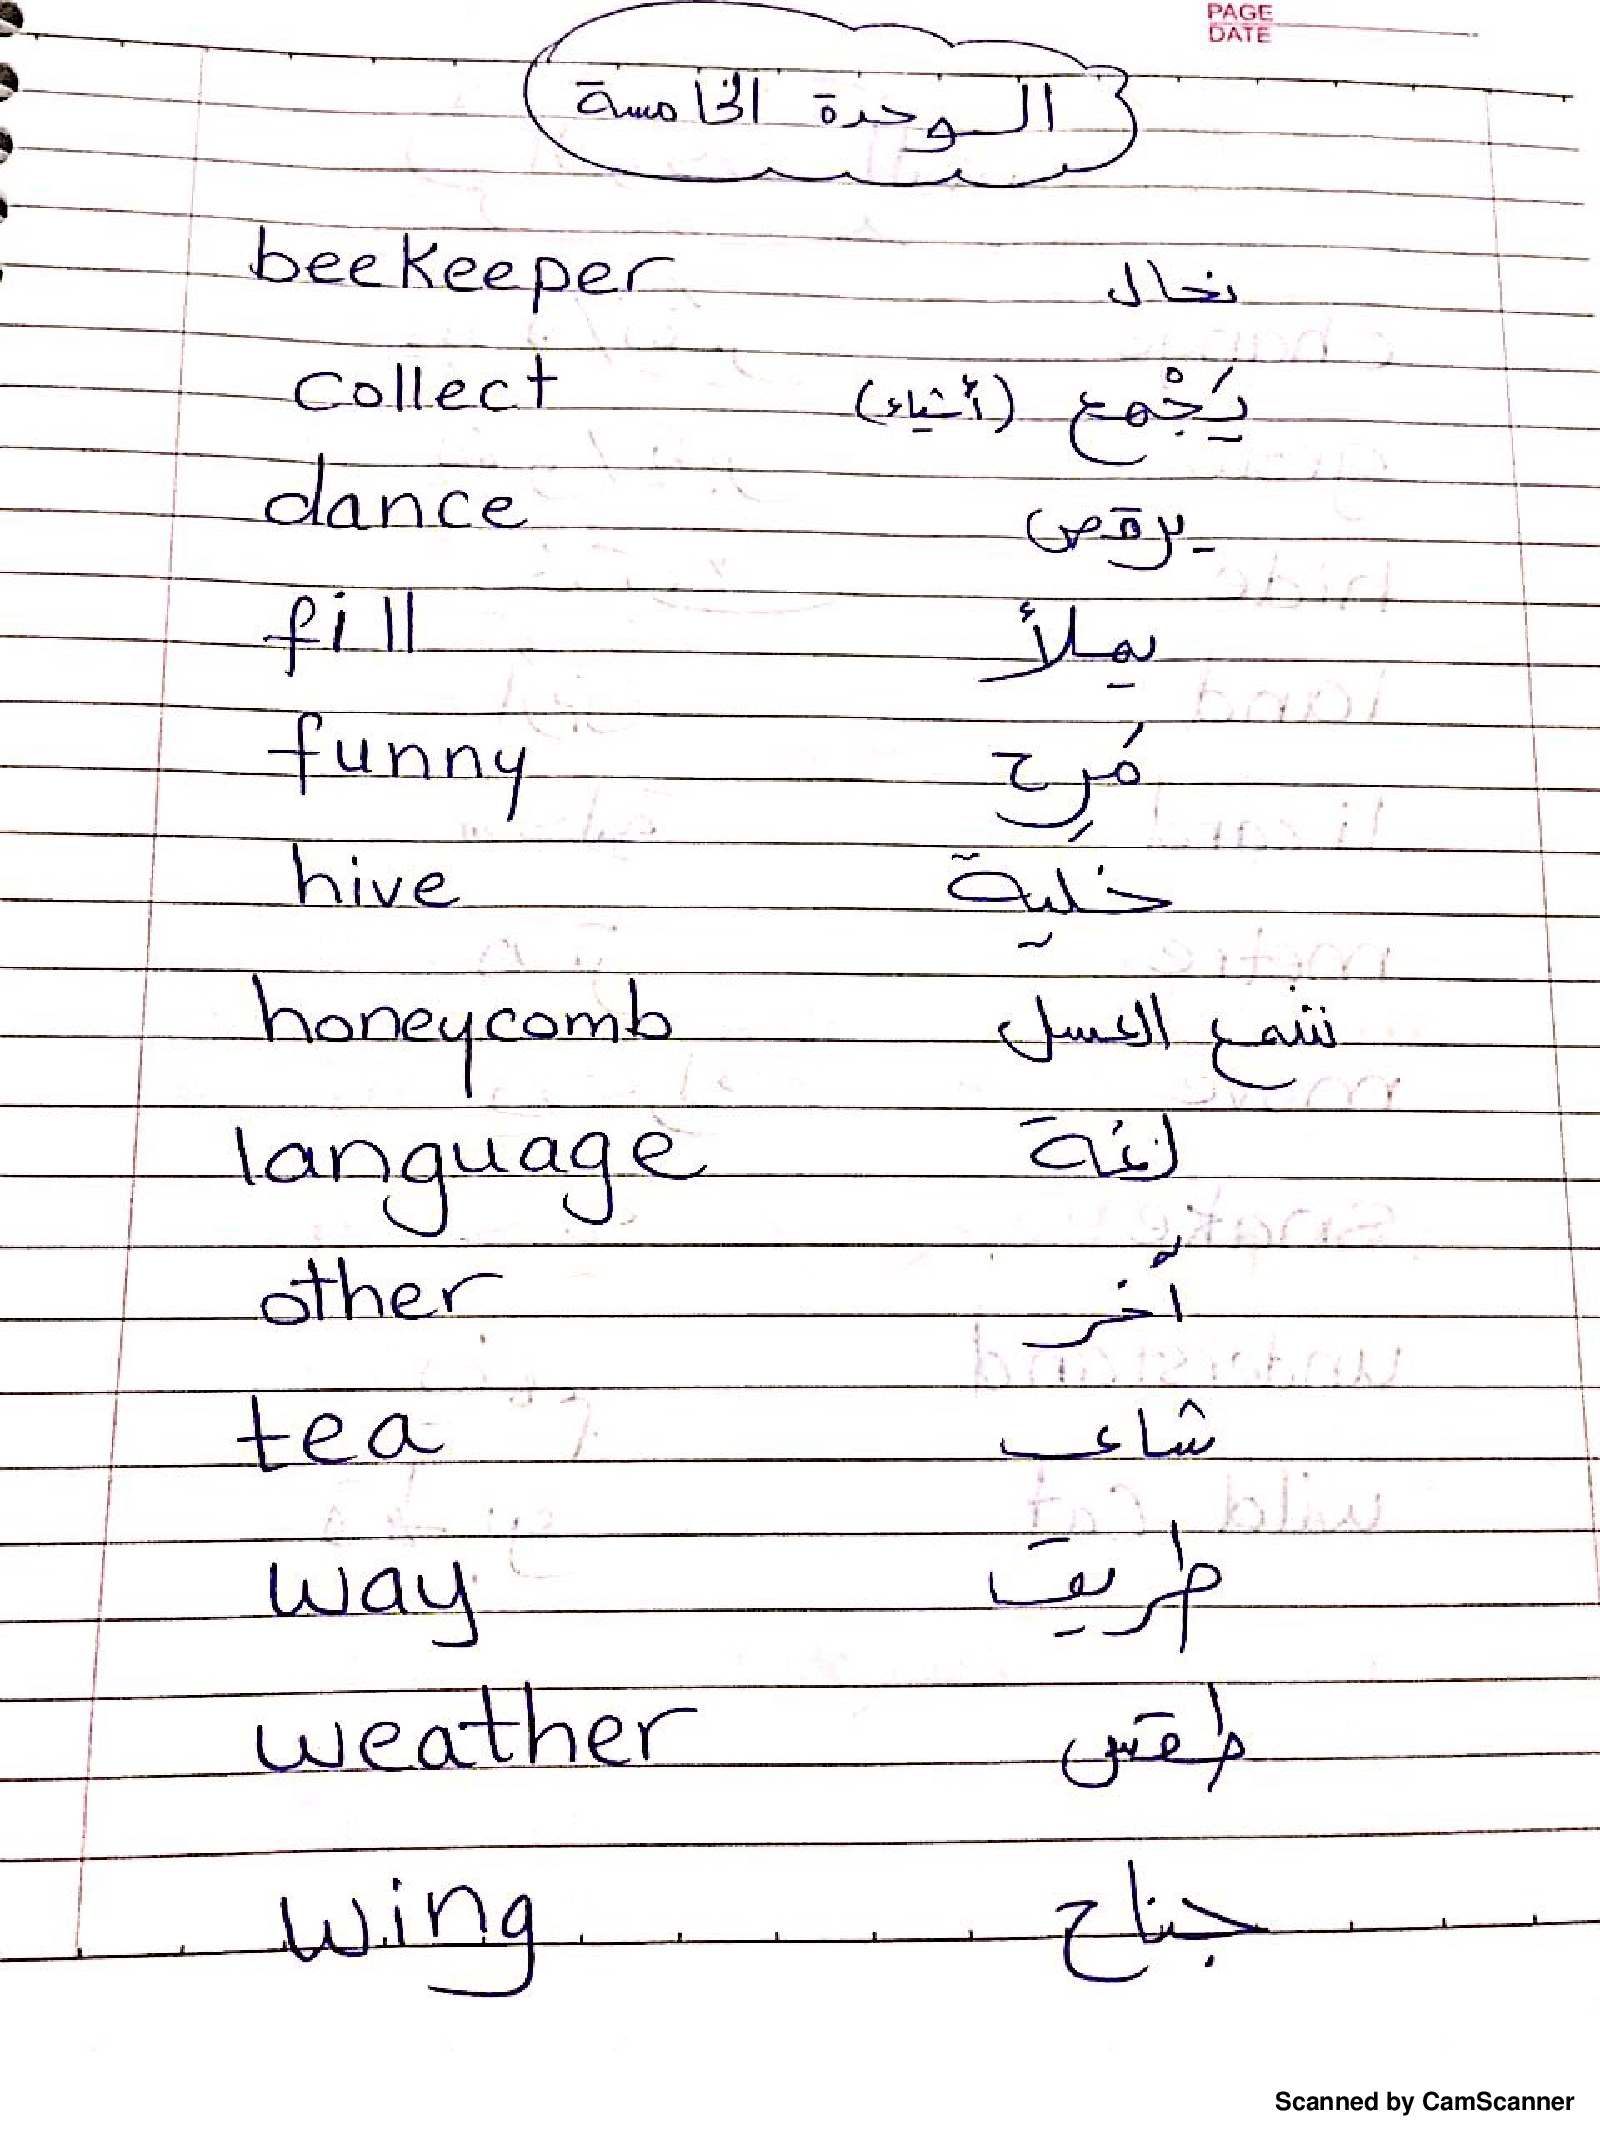 PAGE
DATE
الوحدة الخامسة
beekeeper نحال
collect يَجْمع (أشياء)
dance يرقص
fill يملأ
funny مَرِح
hive خلية
honeycomb شمع العسل
language لغة
other أخر
tea شاي
way طريق
weather طقس
wing جناح
Scanned by CamScanner